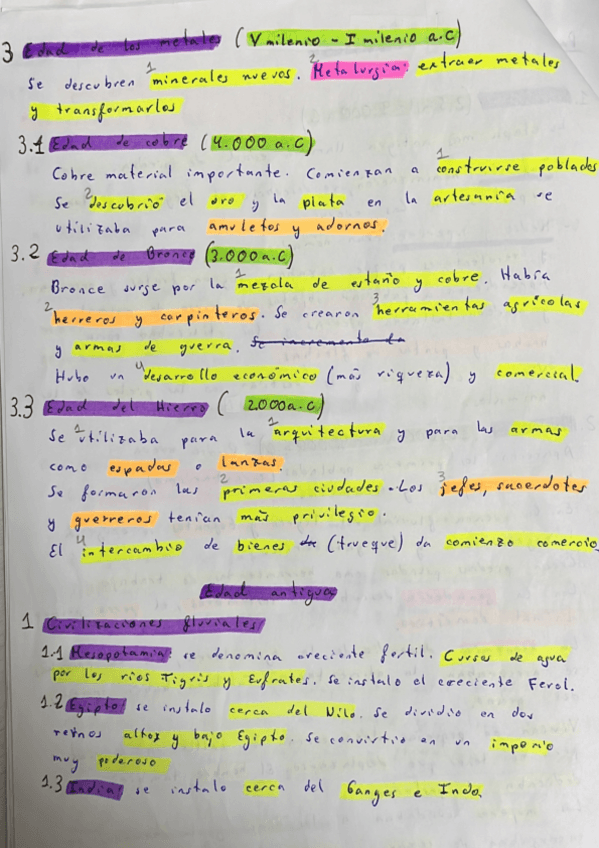 3 Edad de los metales (V milenio - I milenio a.C)
Se descubren 1 minerales nuevos. 2 Metalurgia: extraer metales
y transformarlos
3.1 Edad de cobre (4.000 a.C)
Cobre material importante. Comienzan a 1 construirse poblados
Se 2 descubrió el oro y la plata en la artesanía se
utilizaba para amuletos y adornos.
3.2 Edad de Bronce (3.000 a.C)
Bronce surge por la 1 mezcla de estaño y cobre. Había
2 herreros y carpinteros. Se crearon 3 herramientas agricolas
y armas de guerra. Se incremento
Hubo un 4 desarrollo económico (más riqueza) y comercial.
3.3 Edad del Hierro ( 2.000 a.C)
Se 1 utilizaba para la 1 arquitectura y para las armas
como espadas o lanzas.
Se formaron las 2 primeras ciudades. Los 3 jefes, sacerdotes
y guerreros tenían más privilegio.
El 4 intercambio de bienes (trueque) da comienzo comercio
Edad antigua
1 Civilizaciones fluviales
1.1 Mesopotamia: se denomina creciente fertil. Cursos de agua
por los rios Tigris y Eufrates. Se instalo el creciente Ferol.
1.2 Egipto se instalo cerca del Nilo. Se dividio en dos
reinos altox y bajo Egipto. Se convirtio en un imperio
muy poderoso
1.3 India: se instalo cerca del Ganges e Indo.